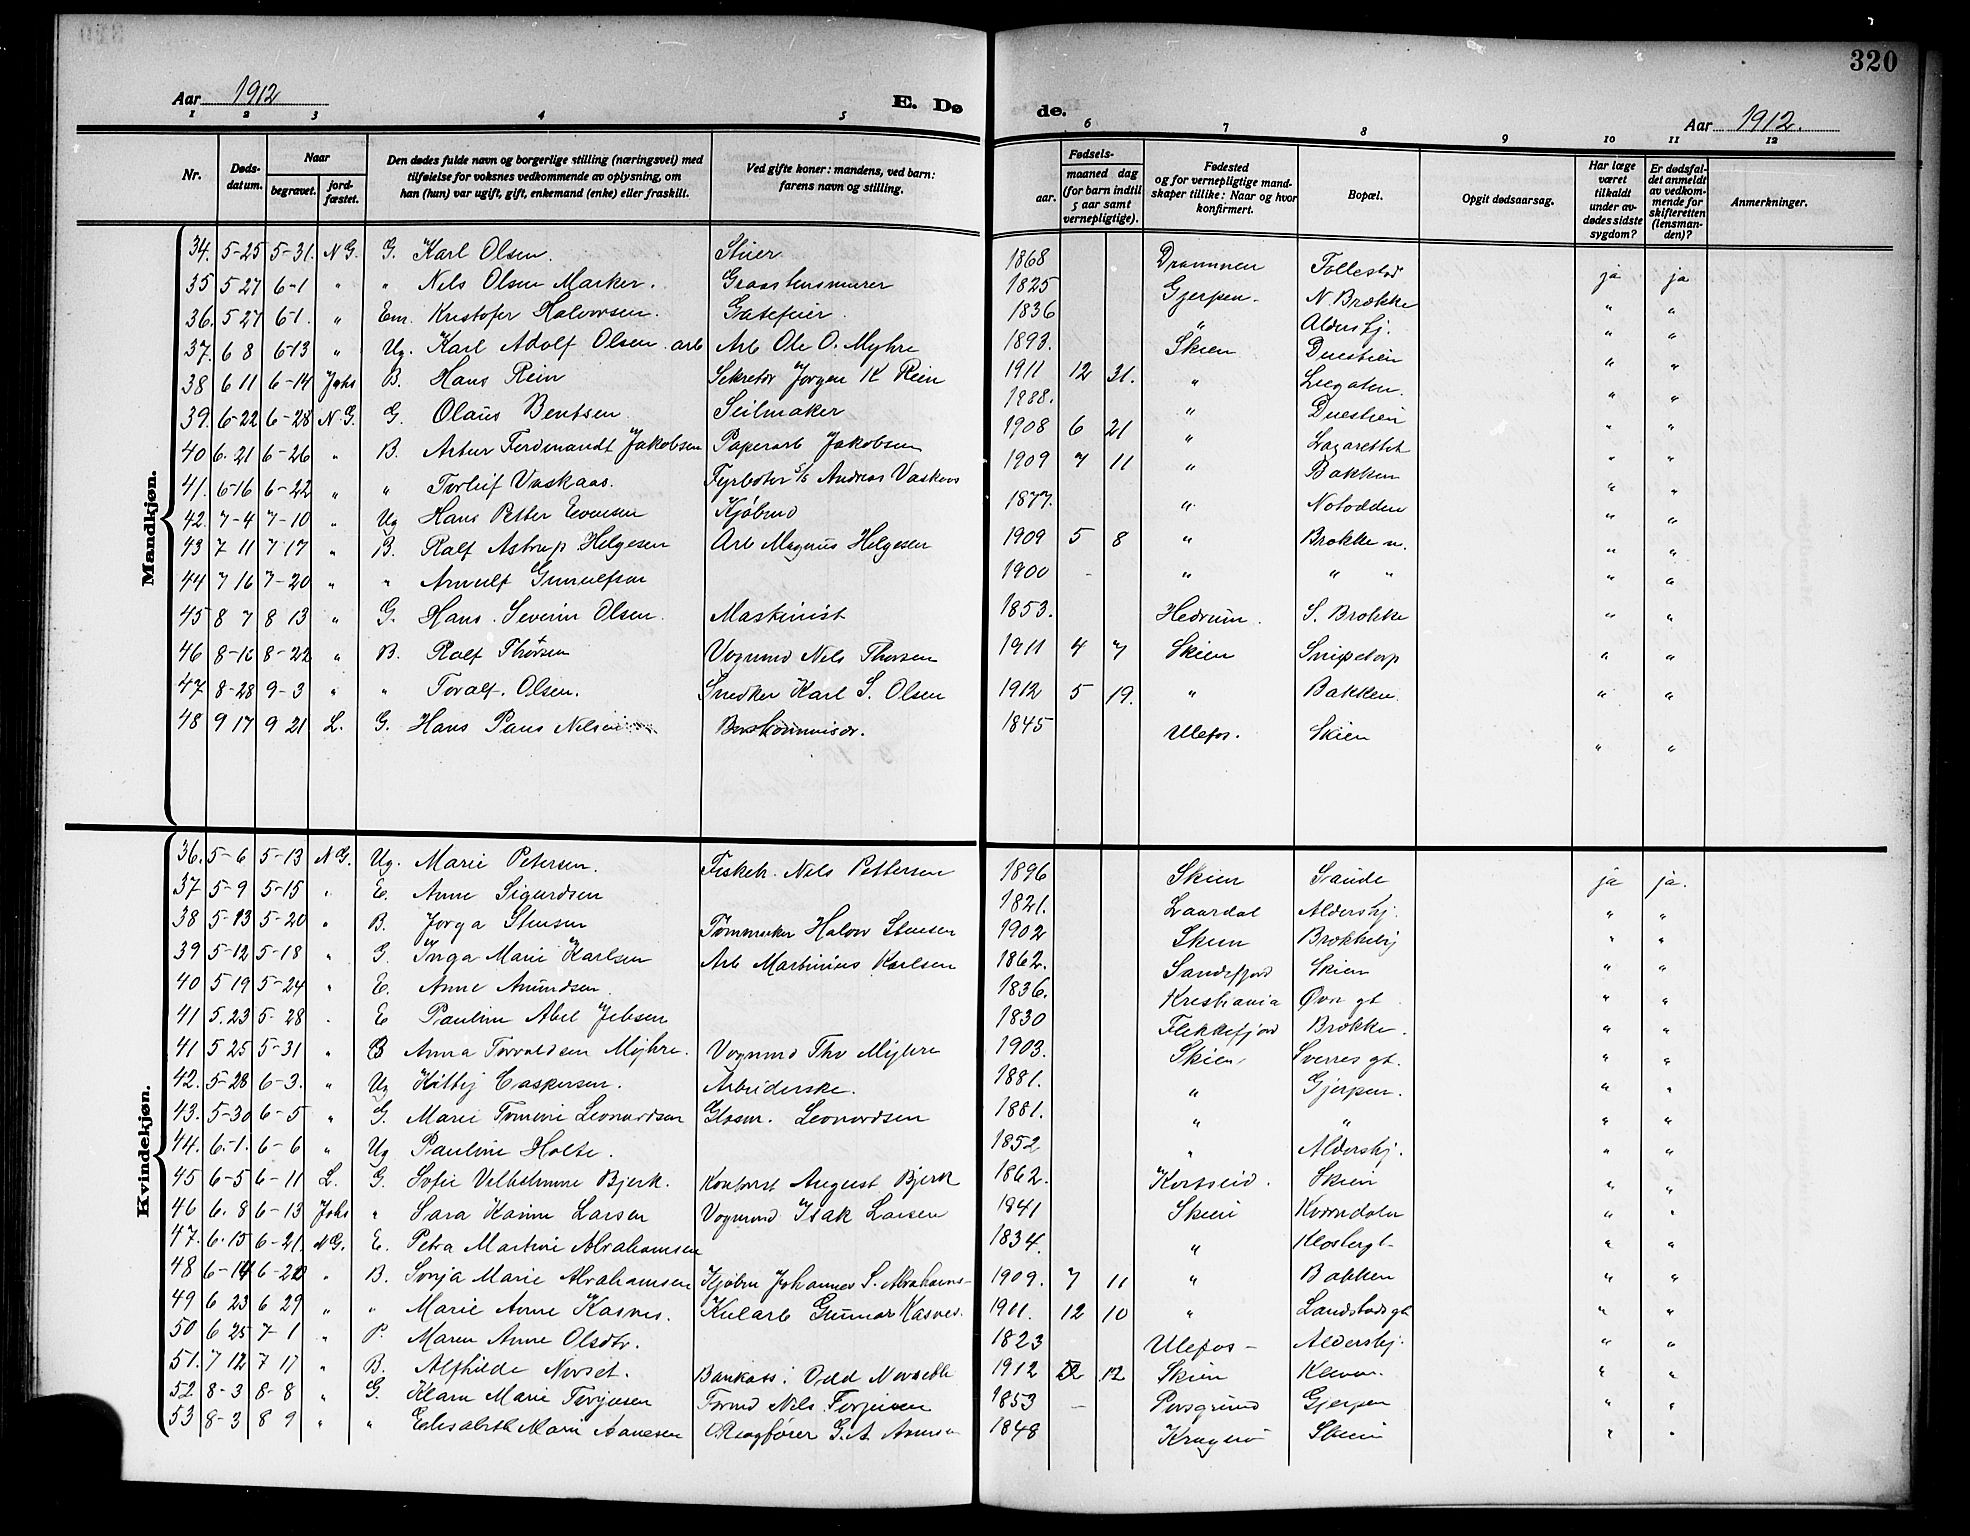 320
Aar 1912
E. Dø
de.
Aar 1912.
1 2 3 4 5 6 7 8 9 10 11 12
Nr.
Døds-
datum.
Naar
begravet.
jord-
fæstet.
Den dødes fulde navn og borgerlige stilling (næringsvei) med
tilføielse for voksnes vedkommende av oplysning, om
han (hun) var ugift, gift, enkemand (enke) eller fraskilt.
Ved gifte koner: mandens, ved barn:
farens navn og stilling.
Fødsels-
aar.
maaned dag
(for barn indtil
5 aar samt
vernepligtige).
Fødested
og for vernepligtige mand-
skaper tillike: Naar og hvor
konfirmert.
Bopæl.
Opgit dødsaarsag.
Har læge
været
tilkaldt
under av-
dødes sidste
sygdom?
Er dødsfal-
det anmeldt
av vedkom-
mende for
skifteretten
(lensman-
den)?
Anmerkninger.
Mandkjøn.
34. 5-25 5-31. N G. G. Karl Olsen. Stuer 1868 Drammen Follestad ja ja
35 5 27 6-1 " " Nels Olsen Marker. Graastensmurer 1825 Gjerpen. N Brække " "
36. 5 27 6-1. " Em. Kristofer Halvorsen. Gatefeier. 1836 " Aldershj. " "
37. 6 8 6-13 " Ug. Karl Adolf Olsen arb Arb Ole O. Myhre 1893. Skien Duestien " "
38 6 11 6-14 Johs B. Hans Rein Sekretær Jørgen K Rein 1911 12 31. " " "
39. 6-22 6-28 N.G. G. Olaus Bentsen. Seilmaker 1888. " Duestien " "
40 6. 21 6-26 " B. Artur Ferdinandt Jakobsen Paperarb Jakobsen 1908 6 21 " Lazarettet " "
41. 6-16 6-22 " " Torleif Vaskaas. Fyrbøter S/S Andreas Vaskaas 1909 7 11 " Bakken " "
42. 7-4 7-10 " Ug Hans Petter Evensen Kjøbmd 1877. " Notodden " "
43 7 11 7 17 " B. Ralf Astrup Helgesen Arb Magnus Helgesen 1909 5 8 " Brække n. " "
44 7 16 7-20 " " Arnulf Gunulfsen 1900 - " " " " "
45 8 7 8 13 " G. Hans Severin Olsen. Maskinist 1853. Hedrum. S. Brække " "
46 8-16 8-22 " B. Ralf Thorsen Vognmd Nels Thorsen 1911 4 7 Skien Snipetorp " "
47 8-28 9-3 " " Toralf. Olsen. Snedker Karl S. Olsen 1912 5 19. " Bakken. " "
48 9 17 9 21 L. G. Hans Paus Nelsen 1845 Ulefos. Skien " "
Kvindekjøn.
36. 5-6 5-13 N G. Ug. Marie Petersen. Fiskeh. Nels Pettersen 1896 Skien Gaude ja ja.
37 5-9 5-15 " E. Anne Sigurdsen 1821. Laardal Aldershj. " "
38 5-13 5-20 " B. Jorga Stensen Tømmerker Halvor Stensen 1902 Skien Brækkebj " "
39 5-12 5-18 " G. Inga Marie Karlsen Arb Martinius Karlsen 1862. Sandefjord Skien " "
40 5 19 5-24 " E. Anne Amundsen. 1836. Kristiania Øvre gt. " "
41 5.23 5-28 . E Pauline Abel Jebsen 1830 Flekkefjord Brække. " "
41 5 25 5-31 " B Anna Torvaldsen Myhre. Vognmd Thv Myhre 1903. Skien, Sverres gt. " "
42. 5-28 6-3. " Ug Kittij Caspersen. Arbeiderske. 1881. " Gjerpen. " "
43. 5-30 6-5 " G. Marie Tomine Leonardsen Glasm. Leonardsen 1881. " " " "
44. 6-1. 6-6 " Ug Pauline Holte. 1852 " Aldershj. " "
45 6-5 6-11 L. G. Sofie Velhelmine Bjerk. Kontorist August Bjerk 1862. Skien " "
46 6. 8 6-13 Johs " Sara Karine Larsen Vognmd Isak Larsen 1841 Skien Kverndalen " "
47. 6.15 6-21. N G. E. Petra Martine Abrahamsen 1834. " Klostergt- " "
48 6-14 6-20 " B. Sonja Marie Abrahamsen Kjøbm Johannes S. Abrahams- 1909. 7 11 " Bakken " "
49 6 23 6 29 " " Marie Anne Kasnes. Kularb Gunnar Kasnes. 1911. 12 10 " Landstadsgt " "
50 6 25 7-1 " P. Maren Anne Olsdtr. 1823 Ulefos - Aldershj. " "
51. 7 12 7 17 " B. Alfhilde Norset. Bankass: Odd 1912 12 Skien Kleven. " "
52 8-3 8-8 " G. Klara Marie Terjesen Formd Nels Terjesen 1853 - Porsgrund Gjerpen " "
53 8-3 8 9 " " Edisabeth Marie Aanesen G. A. 1848 Kragerø Skien " "